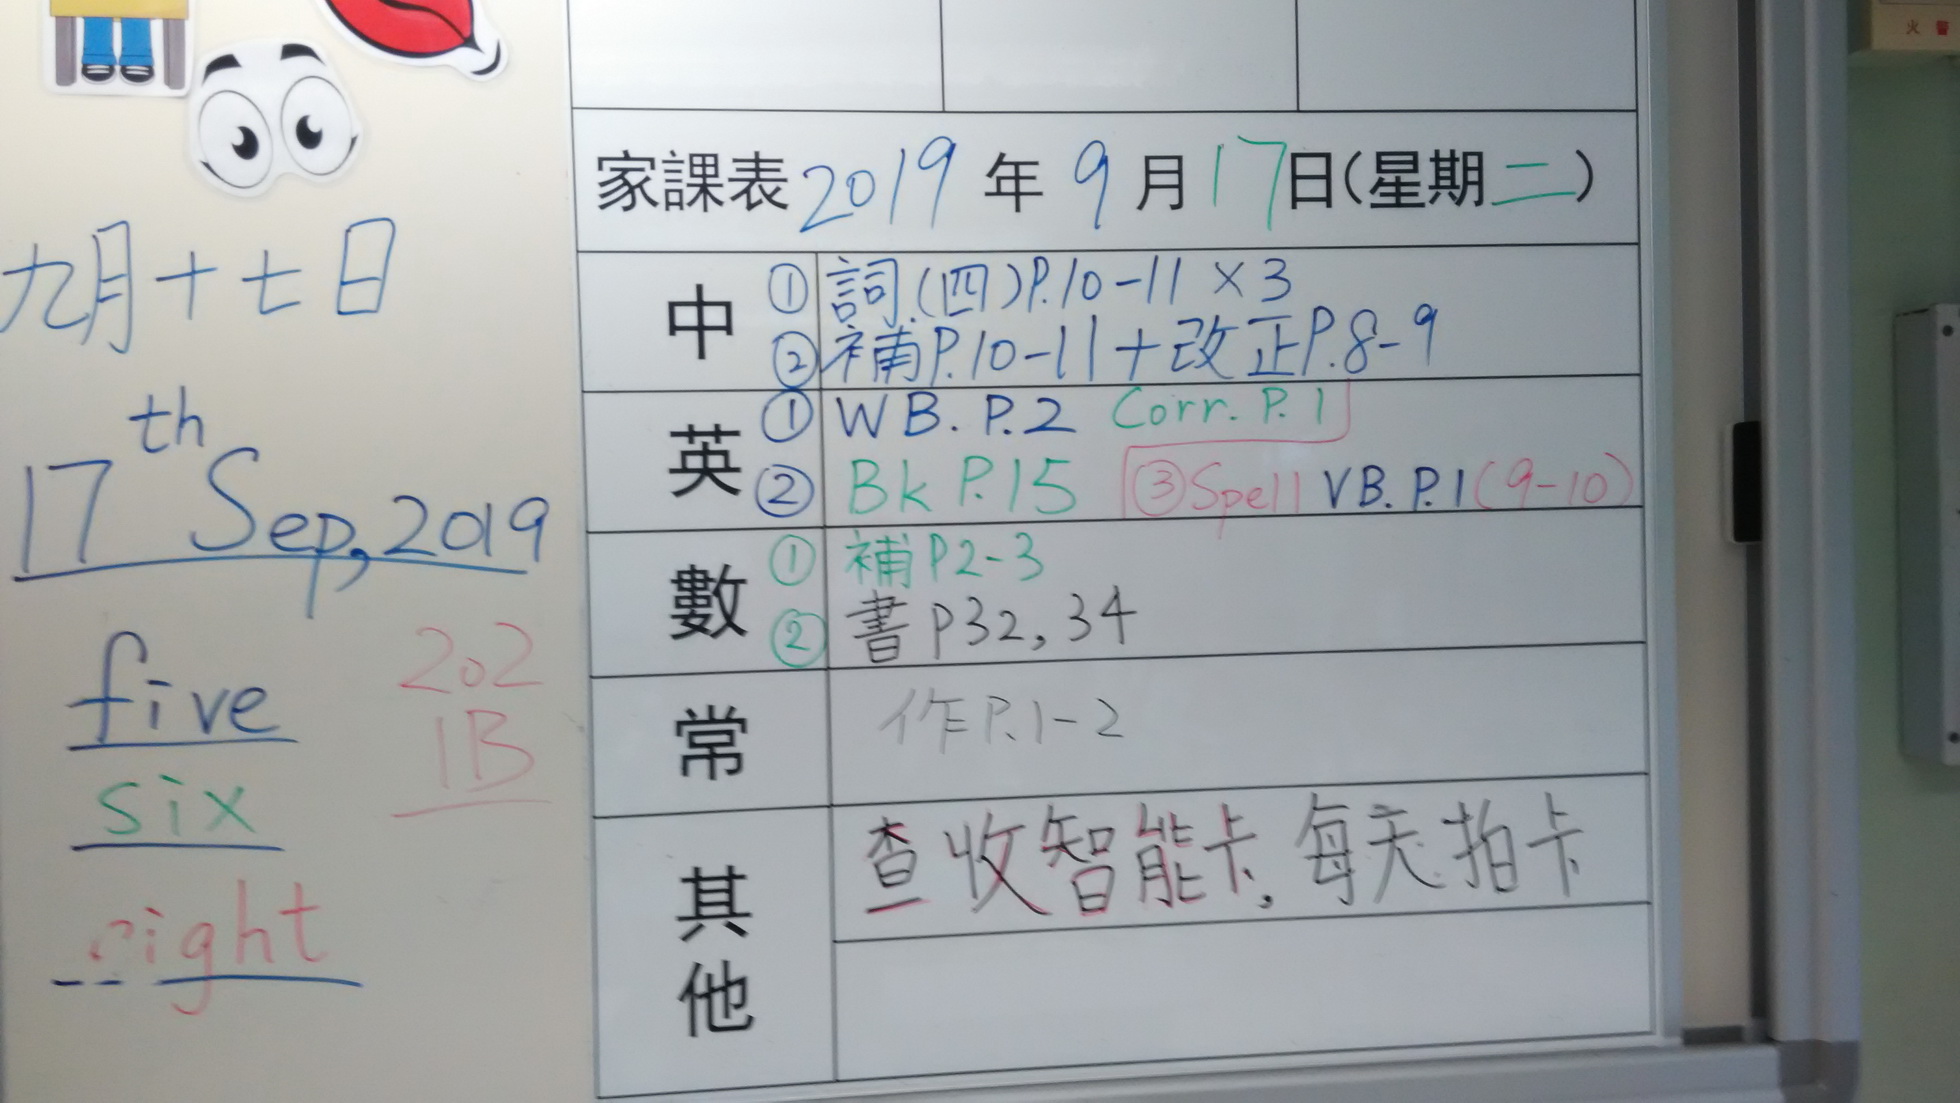 火警
九月十七日
17th Sep, 2019
five
six
right
202
1B
家課表2019年9月17日(星期二)
中
①詞(四)P.10-11 × 3
②補P.10-11+改正P.8-9
英
①WB. P.2 Corr. P.1
②Bk P.15 ③Spell VB. P.1(9-10)
數
①補P2-3
②書P32, 34
常
作P.1-2
其他
查收智能卡, 每天拍卡